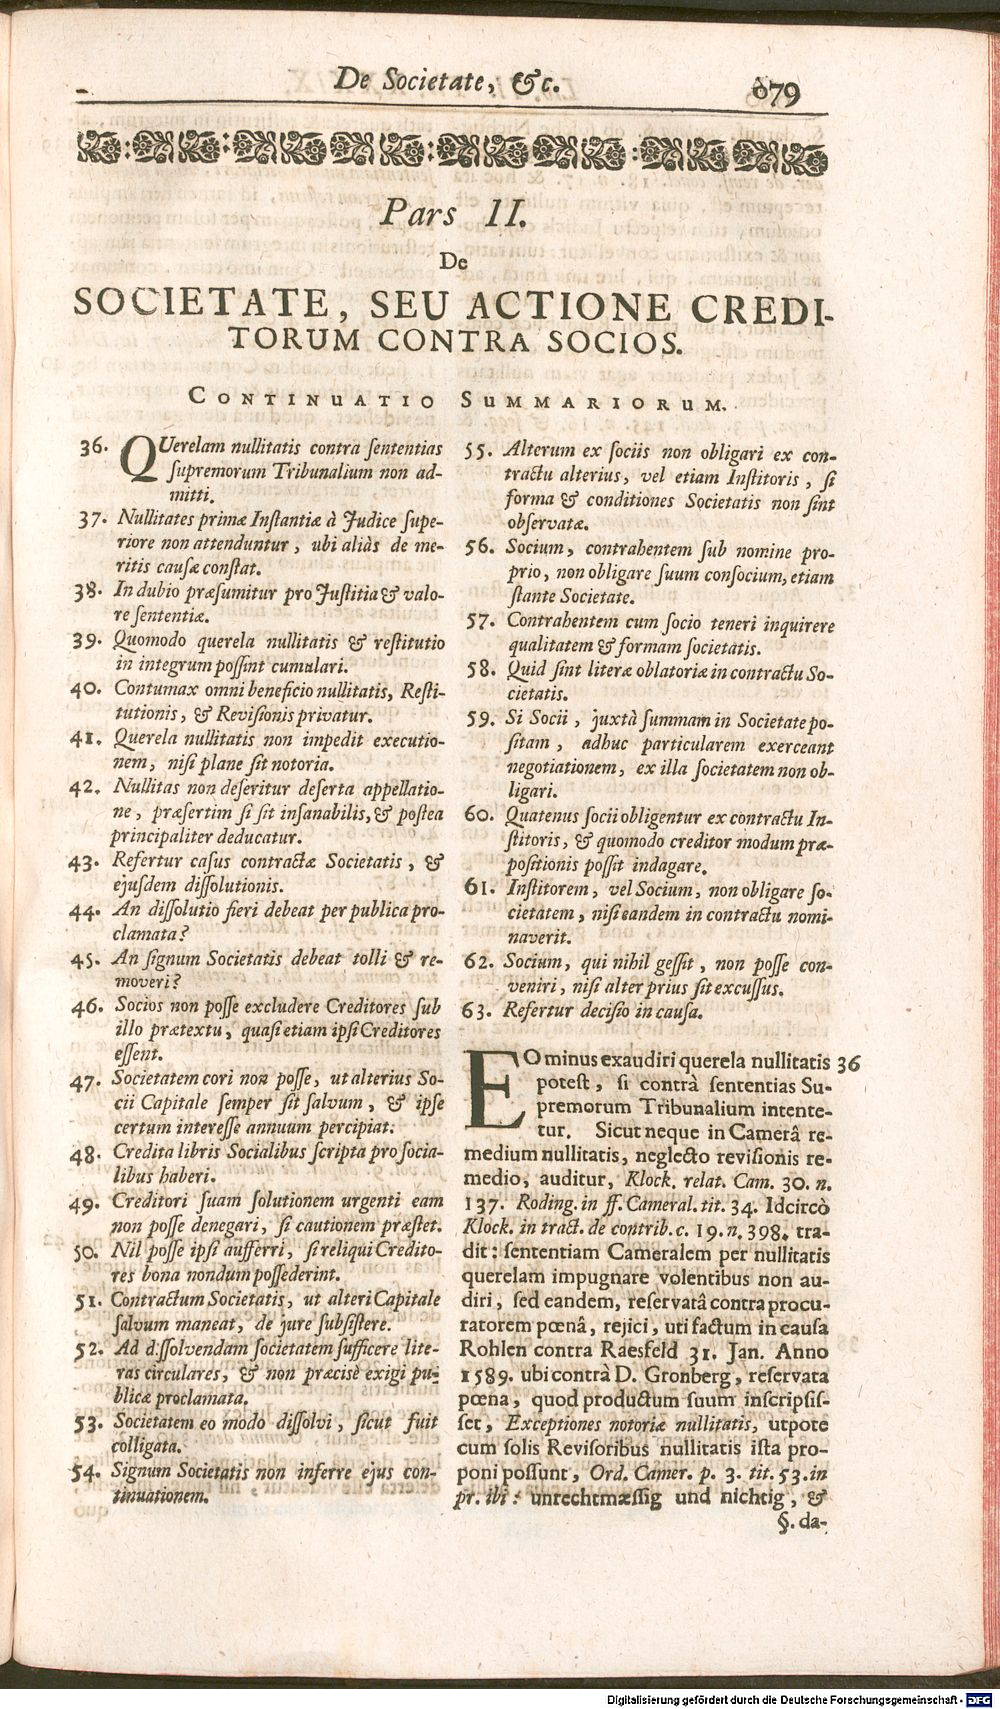 De Societate, &c.
679
Pars II.
De
SOCIETATE, SEU ACTIONE CREDI-
TORUM CONTRA SOCIOS.
CONTINUATIO SUMMARIORUM.
36. QUerelam nullitatis contra ſententias
ſupremorum Tribunalium non ad-
mitti.
37. Nullitates primæ Inſtantiæ à Judice ſupe-
riore non attenduntur, ubi aliàs de me-
ritis cauſæ conſtat.
38. In dubio præſumitur pro Juſtitia & valo-
re ſententiæ.
39. Quomodo querela nullitatis & reſtitutio
in integrum poſſint cumulari.
40. Contumax omni beneficio nullitatis, Reſti-
tutionis, & Reviſionis privatur.
41. Querela nullitatis non impedit executio-
nem, niſi plane ſit notoria.
42. Nullitas non deſeritur deſerta appellatio-
ne, præſertim ſi ſit inſanabilis, & poſtea
principaliter deducatur.
43. Refertur caſus contractæ Societatis, &
ejuſdem diſſolutionis.
44. An diſſolutio fieri debeat per publica pro-
clamata?
45. An ſignum Societatis debeat tolli & re-
moveri?
46. Socios non poſſe excludere Creditores ſub
illo prætextu, quaſi etiam ipſi Creditores
eſſent.
47. Societatem cori non poſſe, ut alterius So-
cii Capitale ſemper ſit ſalvum, & ipſe
certum intereſſe annuum percipiat.
48. Credita libris Socialibus ſcripta pro ſocia-
libus haberi.
49. Creditori ſuam ſolutionem urgenti eam
non poſſe denegari, ſi cautionem præſtet.
50. Nil poſſe ipſi aufferri, ſi reliqui Credito-
res bona nondum poſſederint.
51. Contractum Societatis, ut alteri Capitale
ſalvum maneat, de jure ſubſiſtere.
52. Ad dſſolvendam ſocietatem ſufficere lite-
ras circulares, & non præcisè exigi pu-
blicæ proclamata.
53. Societatem eo modo diſſolvi, ſicut fuit
colligata.
54. Signum Societatis non inferre ejus con-
tinuationem.
55. Alterum ex ſociis non obligari ex con-
tractu alterius, vel etiam Inſtitoris, ſi
forma & conditiones Societatis non ſint
obſervatæ.
56. Socium, contrahentem ſub nomine pro-
prio, non obligare ſuum conſocium, etiam
ſtante Societate.
57. Contrahentem cum ſocio teneri inquirere
qualitatem & formam ſocietatis.
58. Quid ſint literæ oblatoriæ in contractu So-
cietatis.
59. Si Socii, juxtà ſummam in Societate po-
ſitam, adhuc particularem exerceant
negotiationem, ex illa ſocietatem non ob-
ligari.
60. Quatenus ſocii obligentur ex contractu In-
ſtitoris, & quomodo creditor modum præ-
poſitionis poſſit indagare.
61. Inſtitorem, vel Socium, non obligare ſo-
cietatem, niſi eandem in contractu nomi-
naverit.
62. Socium, qui nihil geſſit, non poſſe con-
veniri, niſi alter prius ſit excuſſus.
63. Refertur deciſio in cauſa.
EO minus exaudiri querela nullitatis 36
poteſt, ſi contrà ſententias Su-
premorum Tribunalium intente-
tur. Sicut neque in Camerâ re-
medium nullitatis, neglecto reviſionis re-
medio, auditur, Klock. relat. Cam. 30. n.
137. Roding. in ff. Cameral. tit. 34. Idcircò
Klock. in tract. de contrib. c. 19. n. 398. tra-
dit: ſententiam Cameralem per nullitatis
querelam impugnare volentibus non au-
diri, ſed eandem, reſervatâ contra procu-
ratorem pœnâ, rejici, uti factum in cauſa
Rohlen contra Raesfeld 31. Jan. Anno
1589. ubi contrà D. Gronberg, reſervata
pœna, quod productum ſuum inſcripſiſ-
ſet, Exceptiones notoriæ nullitatis, utpote
cum ſolis Reviſoribus nullitatis iſta pro-
poni poſſunt, Ord. Camer. p. 3. tit. 53. in
pr. ibi: unrechtmæſſig und nichtig, &
§. da-
Digitalisierung gefördert durch die Deutsche Forschungsgemeinschaft - DFG